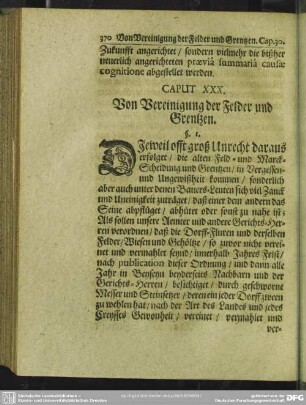 370 Von Vereinigung der Felder und Grentzen. Cap.30.
Zukunfft angerichtet / sondern vielmehr die bißher
neuerlich angerichteten præviâ summariâ causæ
cognitione abgestellet werden.
CAPUT XXX.
Von Vereinigung der Felder und
Grentzen.
§. 1.
DJeweil offt groß Unrecht daraus
erfolget / die alten Feld- und Marck-
Scheidung und Grentzen / in Vergessen-
und Ungewißheit kommen / sonderlich
aber auch unter denen Bauers-Leuten sich viel Zanck
und Uneinigkeit zuträget / daß einer dem andern das
Seine abpflüget / abhütet oder sonst zu nahe ist:
Als sollen unsere Aemter und andere Gerichts-Her-
ren verordnen / daß die Dorff-Fluren und derselben
Felder / Wiesen und Gehöltze / so zuvor nicht verei-
net und vermahlet seynd / innerhalb Jahres Frist /
nach publication dieser Ordnung / und dann alle
Jahr in Beyseyn beyderseits Nachbarn und der
Gerichts-Herren / besichtiget / durch geschworne
Messer und Steinsetzer / deren ein jeder Dorff zween
zu wehlen hat / nach der Art des Landes und jedes
Creysses Gewonheit / vereinet / vermahlet und
ver-